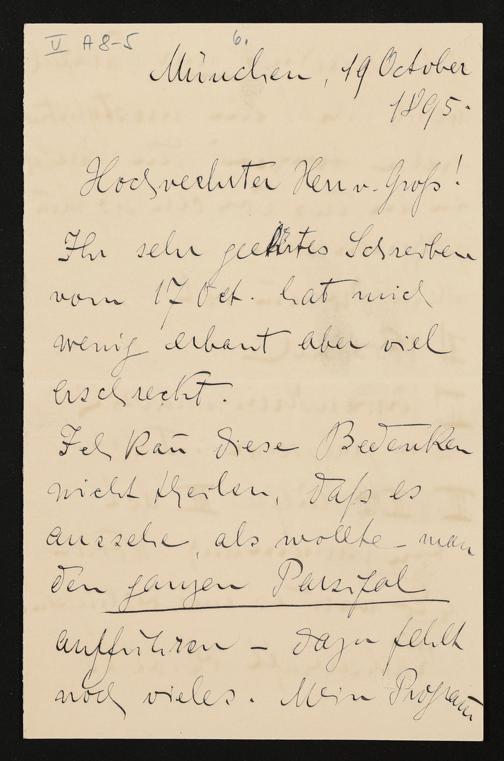 V A 8-5
6.
München, 19 October
1895.
Hochverehrter Herr v. Groß!
Ihr sehr geehrtes Schreiben
vom 17 Oct. hat mich
wenig erbaut aber viel
erschreckt.
Ich kan̄ diese Bedenken
nicht theilen, daß es
aussehe, als wollte – man
den ganzen Parsifal
aufführen – dazu fehlt
noch vieles. Mein Program̄